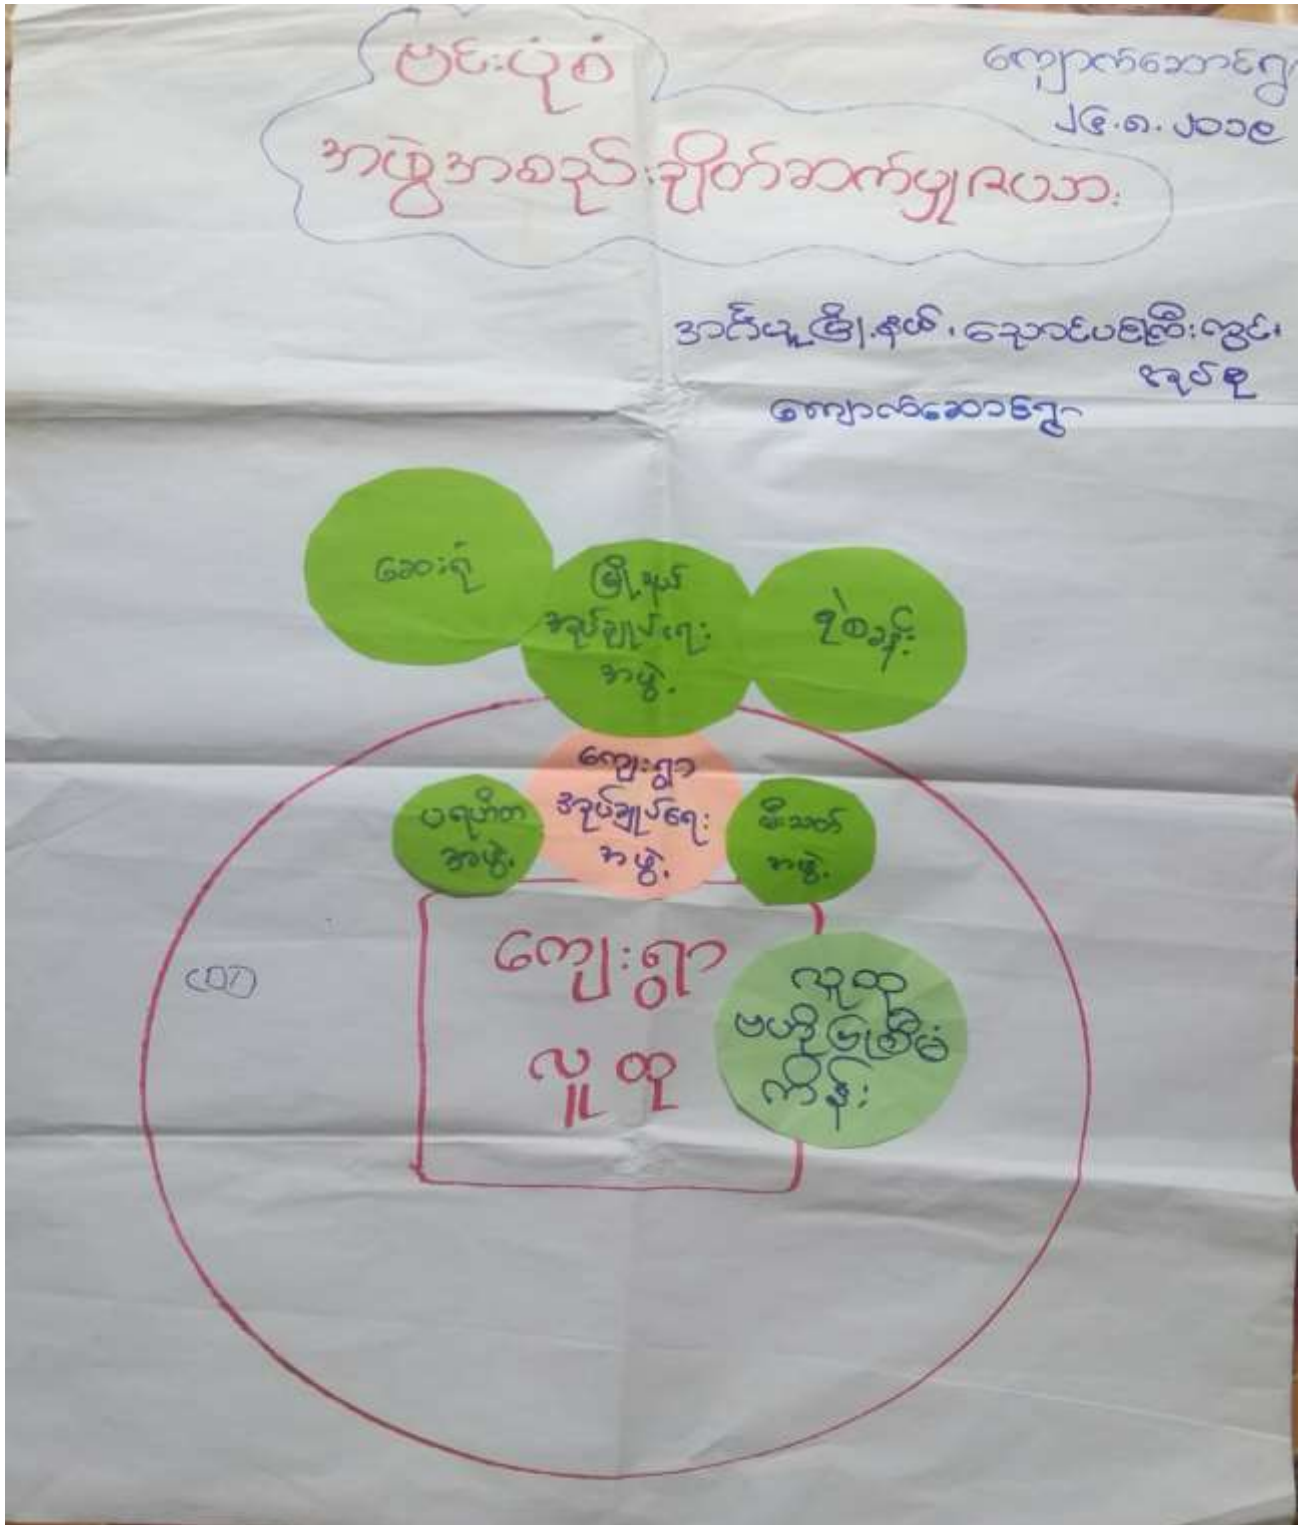 ဗင်းပုံစံ
အဖွဲ့အစည်းချိတ်ဆက်မှုဇယား
ကျောက်ဆောင်ရွာ
၂၄.၈.၂၀၁၉
အင်္ဂပူမြို့နယ်၊ ညောင်ပင်ကြီးကွင်း
အုပ်စု
ကျောက်ဆောင်ရွာ
ဆေးရုံ
မြို့နယ်
အုပ်ချုပ်ရေး
အဖွဲ့
ရဲစခန်း
ကျေးရွာ
အုပ်ချုပ်ရေး
အဖွဲ့
ပရဟိတ
အဖွဲ့
မီးသတ်
အဖွဲ့
ကျေးရွာ
လူထု
လူထု
ဗဟိုပြုစီမံ
ကိန်း